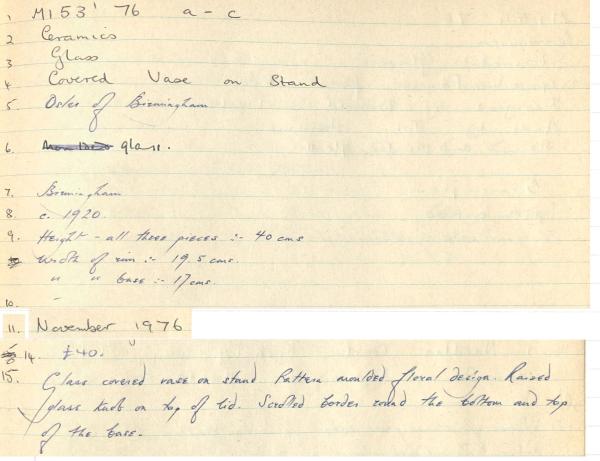 1. M153' 76 a - c
2 Ceramics
3 Glass
4 Covered Vase on Stand
5. Osler of Birmingham
6. glass.
7. Birmingham
8. c. 1920.
9. Height - all three pieces :- 40 cms
Width of rim :- 19,5 cms.
" " base :- 17 cms.
10. -
11. November 1976
14. £40.
15. Glass covered vase on stand Pattern moulded floral design. Raised
glass knob on top of lid. Scrolled border round the bottom and top
of the base.